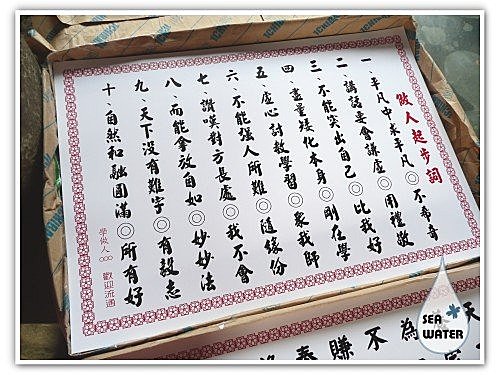 做人起步詞
一、平凡中求平凡◎不希奇
二、講話要會謙虛◎用禮敬
三、不能突出自己◎比我好
四、盡量矮化本身◎剛在學
五、虛心討教學習◎眾我師
六、不能強人所難◎隨緣份
七、讚嘆對方長處◎我不會
八、而能拿放自如◎妙妙法
九、天下沒有難字◎有毅志
十、自然和融圓滿◎所有好
學做人○○○ 歡迎流通
SEA
WATER